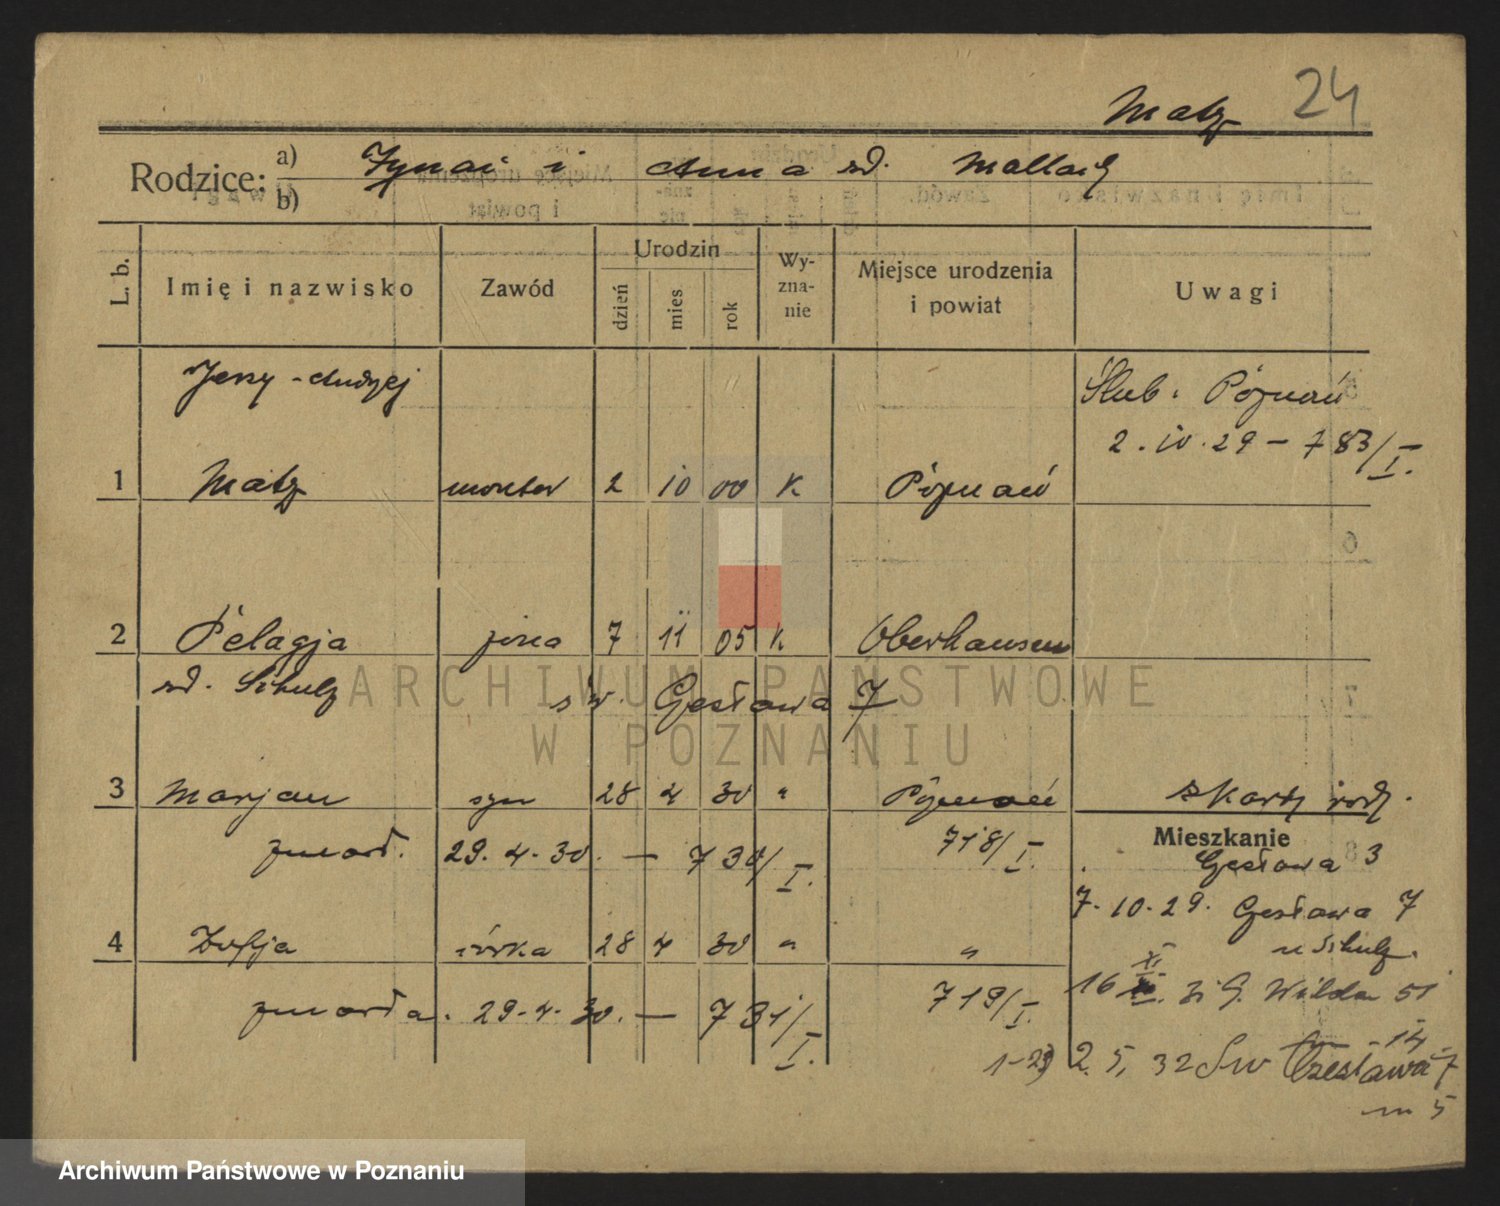 Matz 24
Rodzice: a) Ignac i Anna zd. Mallach
b)
L. b. Imię i nazwisko Zawód Urodzin dzień mies rok Wyznanie Miejsce urodzenia i powiat Uwagi
Jerzy-Andrzej Ślub. Poznań
2.10.29 – 783/I.
1 Matz monter 2 10 00 K Poznań
2 Pelagja żona 7 11 05 K Oberhausen
zd. Schulz św. Czesława 7
3 Marjan syn 28 4 30 " Poznań z karty rodz.
zmarł. 29.4.30. — 730/I. 718/I.
Mieszkanie
Czesława 3
7.10.29. Czesława 7
4 Zofja córka 28 4 30 " "
u Schulz.
zmarła. 29.4.30. — 731/I. 719/I.
16 XI. 31 G. Wilda 51
14
2. 5. 32 Św Czesława 7
m 5
ARCHIWUM PAŃSTWOWE
W POZNANIU
Archiwum Państwowe w Poznaniu